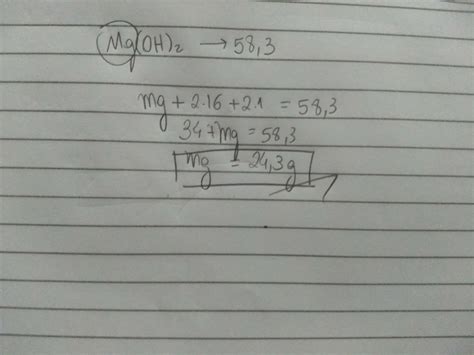 Mg(OH)₂ → 58,3
mg + 2.16 + 2.1 = 58,3
34 + mg = 58,3
mg = 24,3g